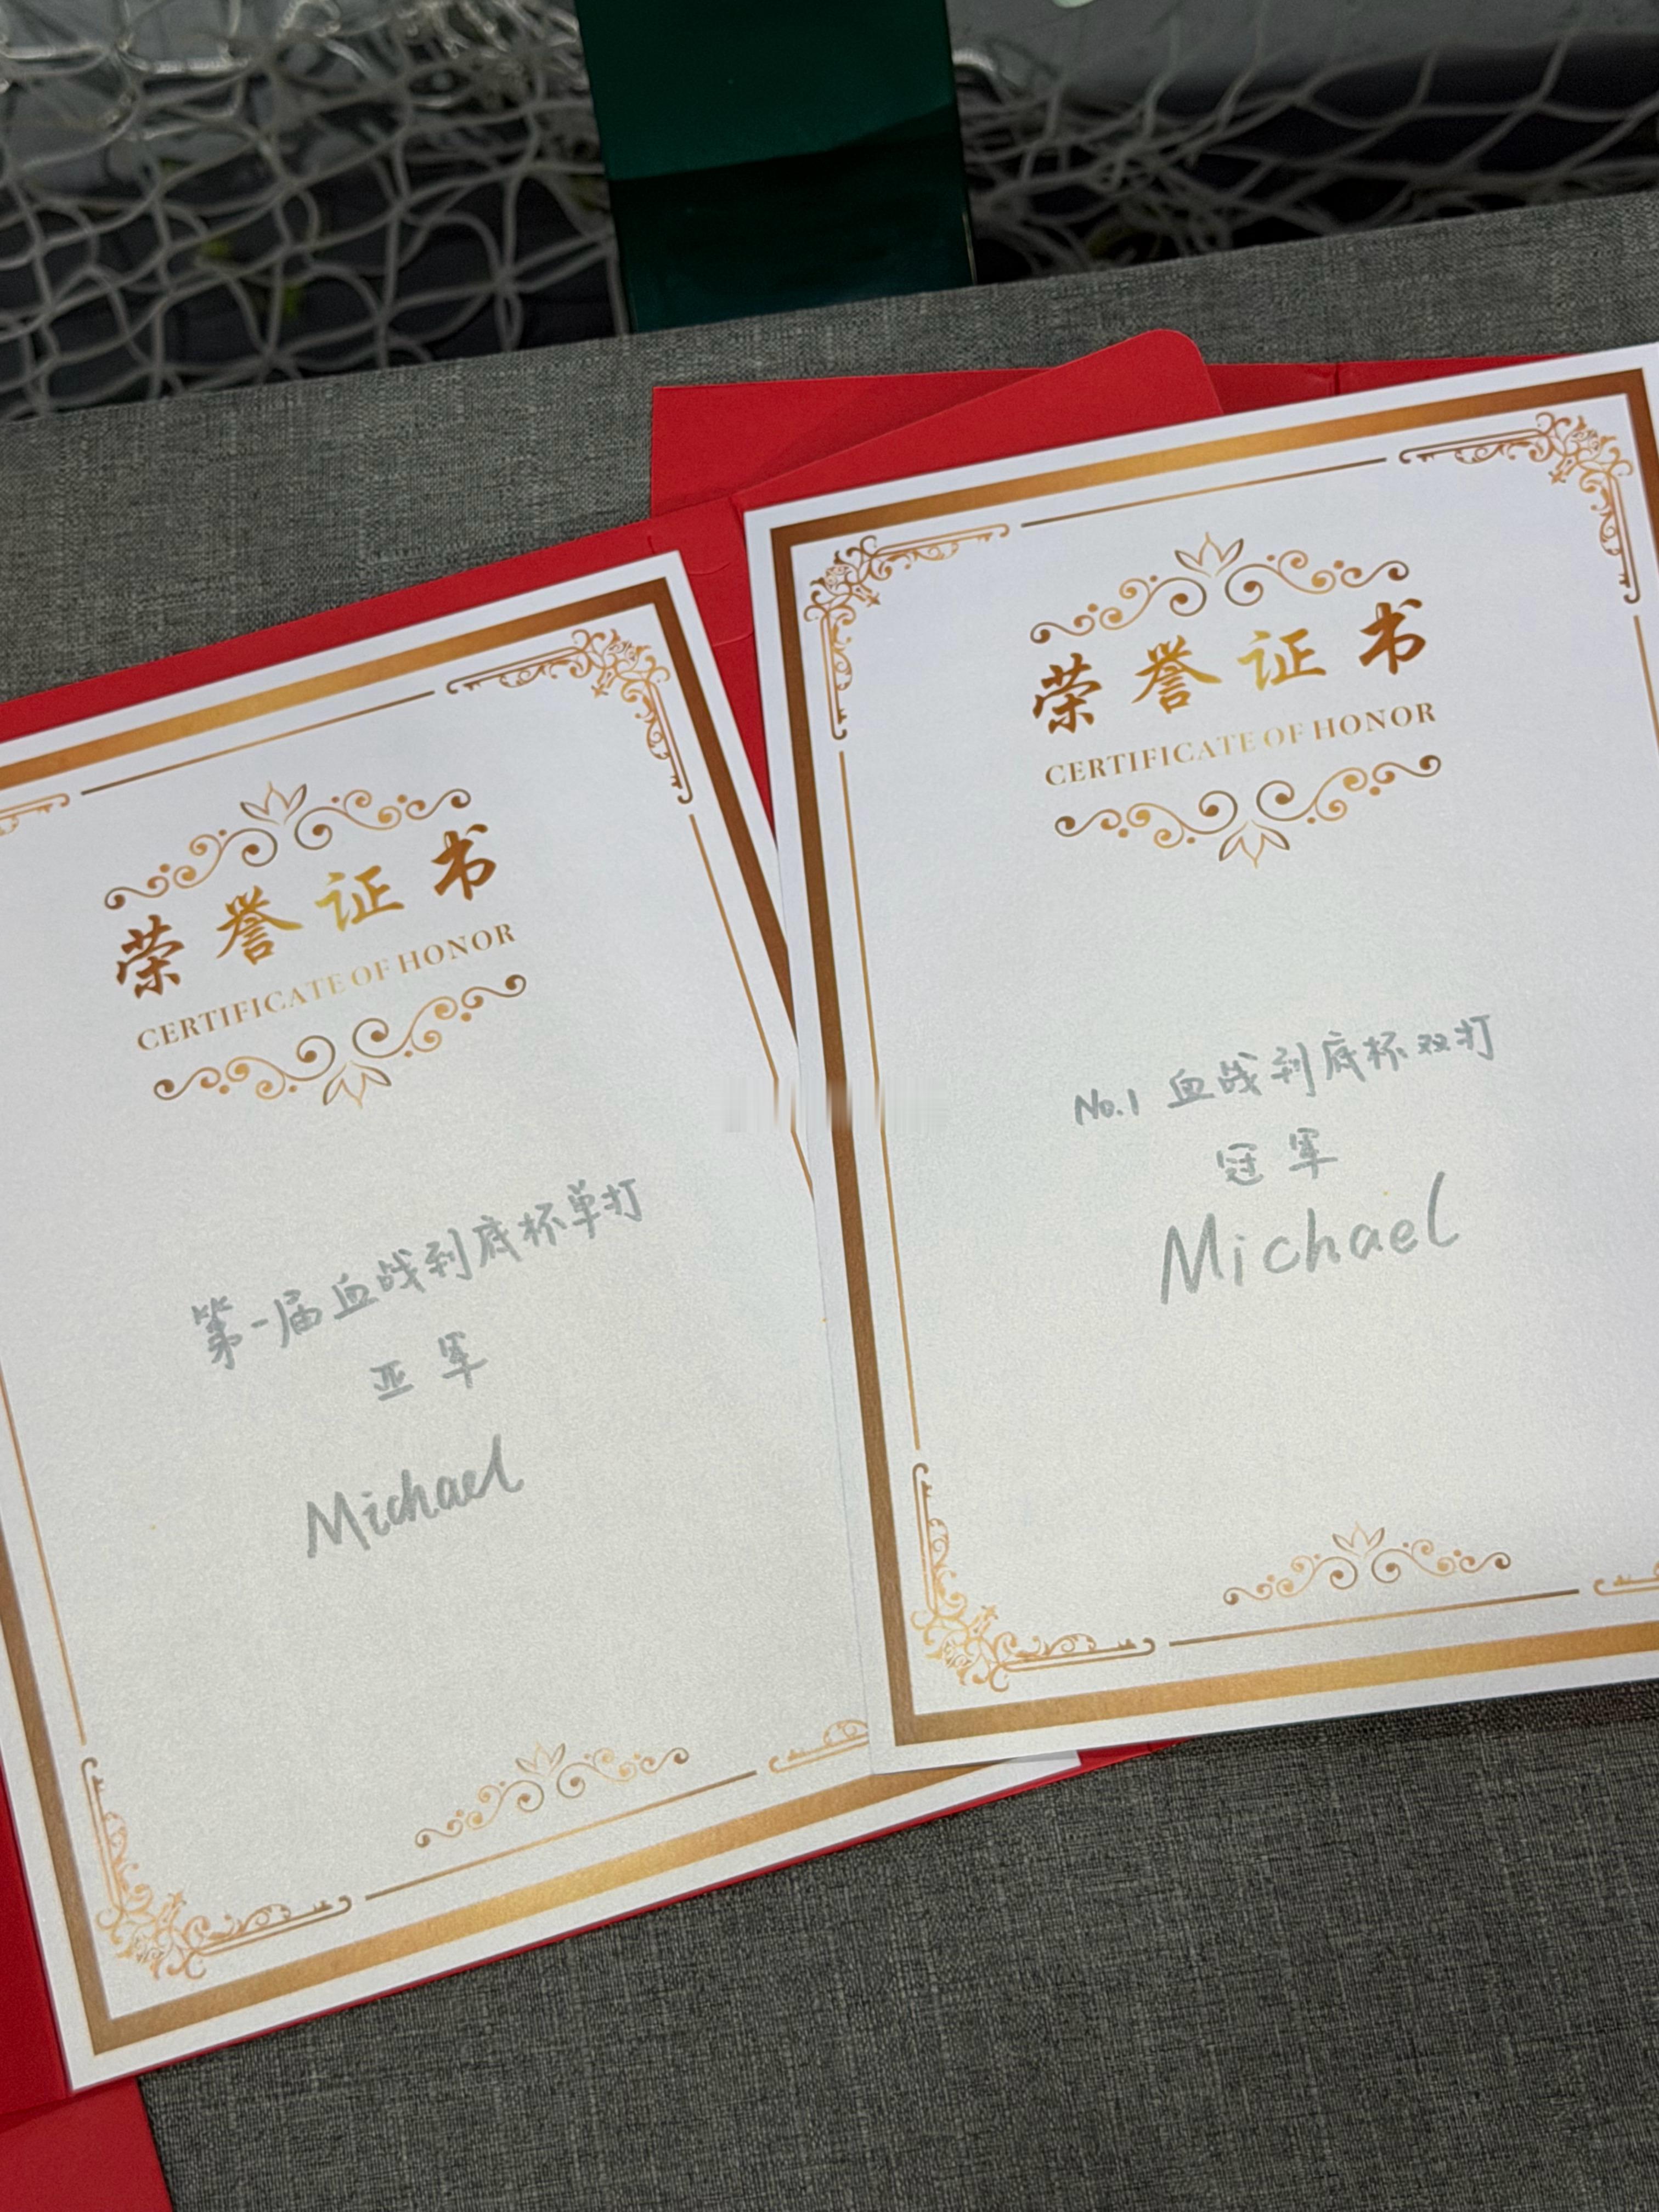 荣誉证书
CERTIFICATE OF HONOR
第一届血战到底杯单打
亚军
Michael
荣誉证书
CERTIFICATE OF HONOR
No.1 血战到底杯双打
冠军
Michael